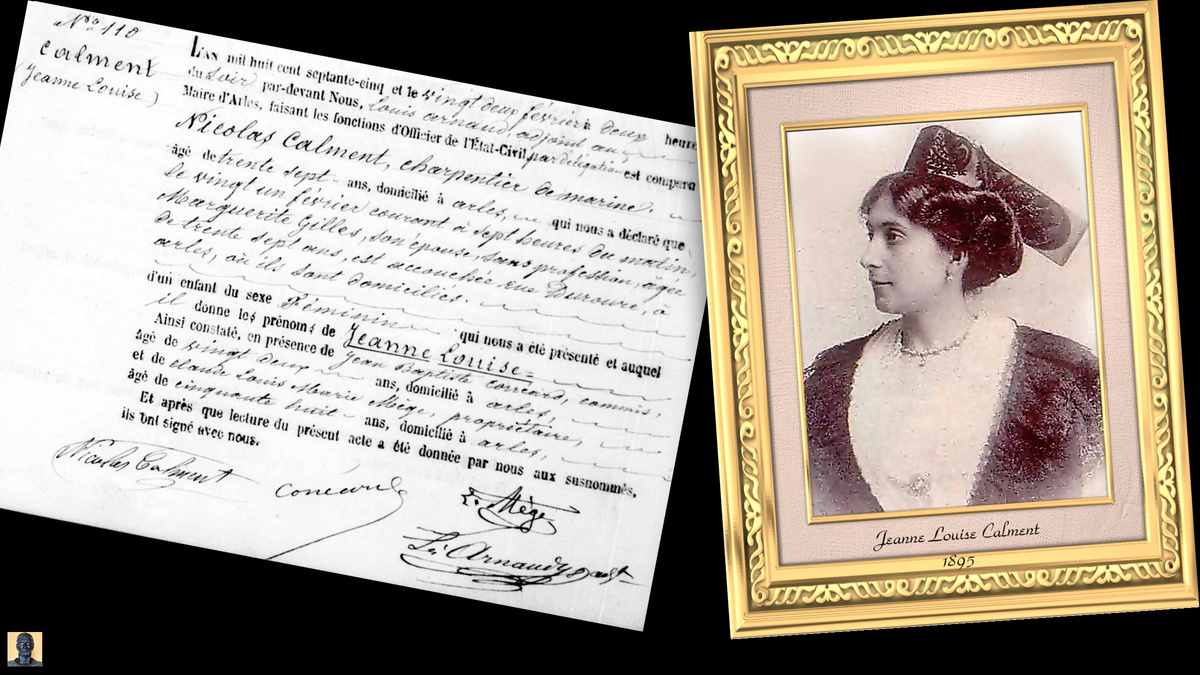 Nro. 110
Calment
(Jeanne Louise)
L'AN mil huit cent septante-cinq et le vingt deux février à deux heures
du Soir par-devant Nous, Louis Arnaud, adjoint au
Maire d'Arles, faisant les fonctions d'Officier de l'État-Civil, par délégation est comparu
Nicolas Calment, charpentier de marine.
âgé de trente sept ans, domicilié à arles, qui nous a déclaré que
le vingt un février courant à sept heures du matin,
Marguerite Gilles, son épouse, sans profession, agée
de trente sept ans, est accouchée rue Duroure, à
arles, où ils sont domiciliés.
d'un enfant du sexe Féminin qui nous a été présenté et auquel
il donne les prénoms de Jeanne Louise
Ainsi constaté, en présence de Jean Baptiste conéard, commis,
âgé de vingt deux ans, domicilié à arles,
et de claude Louis Marie Mège, propriétaire,
âgé de cinquante huit ans, domicilié à arles,
Et après que lecture du présent acte a été donnée par nous aux susnommés,
ils ont signé avec nous.
Nicolas Calment
L. Mège
Ls. Arnaud
Jeanne Louise Calment
1895